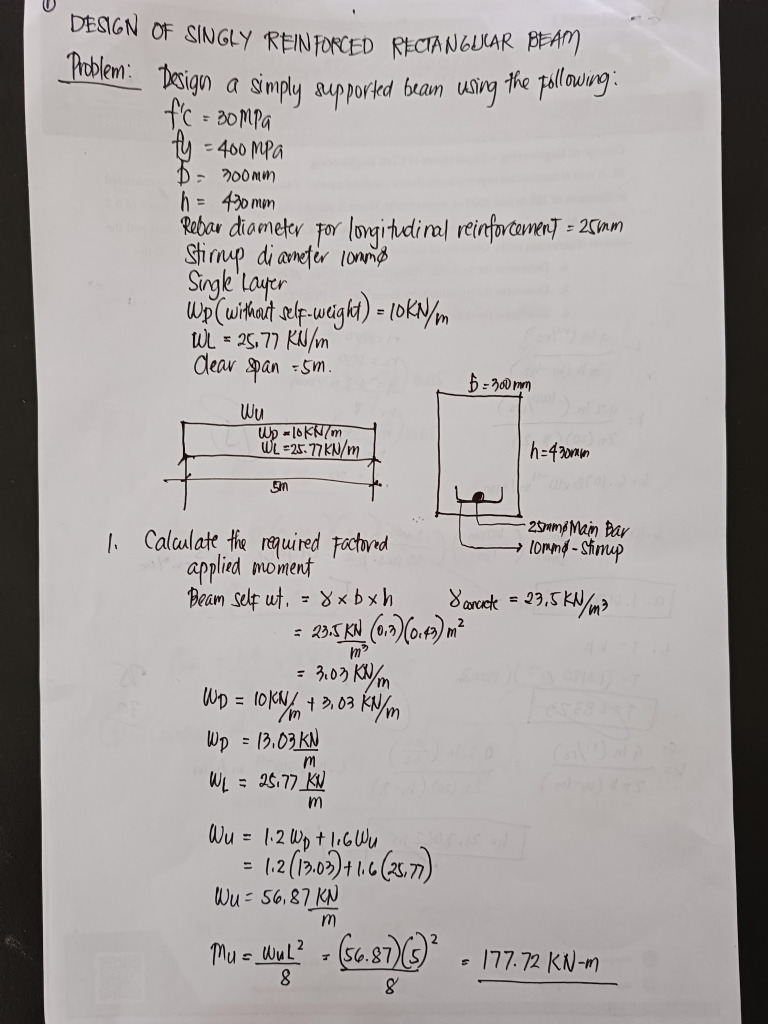 ①
DESIGN OF SINGLY REINFORCED RECTANGULAR BEAM
Problem: Design a simply supported beam using the following:
f'c = 30 MPa
fy = 400 MPa
b = 300mm
h = 430 mm
Rebar diameter for longitudinal reinforcement = 25mm
Stirrup diameter 10mmφ
Single Layer
WD (without self-weight) = 10KN/m
WL = 25.77 KN/m
Clear span = 5m.
b = 300 mm
Wu
WD = 10 KN/m
WL = 25.77 KN/m
h = 430mm
5m
25mmφ Main Bar
10mmφ - Stirrup
1. Calculate the required factored
applied moment
Beam self wt. = γ x b x h γconcrete = 23.5 KN/m³
= 23.5 KN/m³ (0.3)(0.43) m²
= 3.03 KN/m
WD = 10KN/m + 3.03 KN/m
WD = 13.03 KN/m
WL = 25.77 KN/m
Wu = 1.2 WD + 1.6 Wu
= 1.2 (13.03) + 1.6 (25.77)
Wu = 56.87 KN/m
Mu = WuL²/8 = (56.87)(5)²/8 = 177.72 KN-m